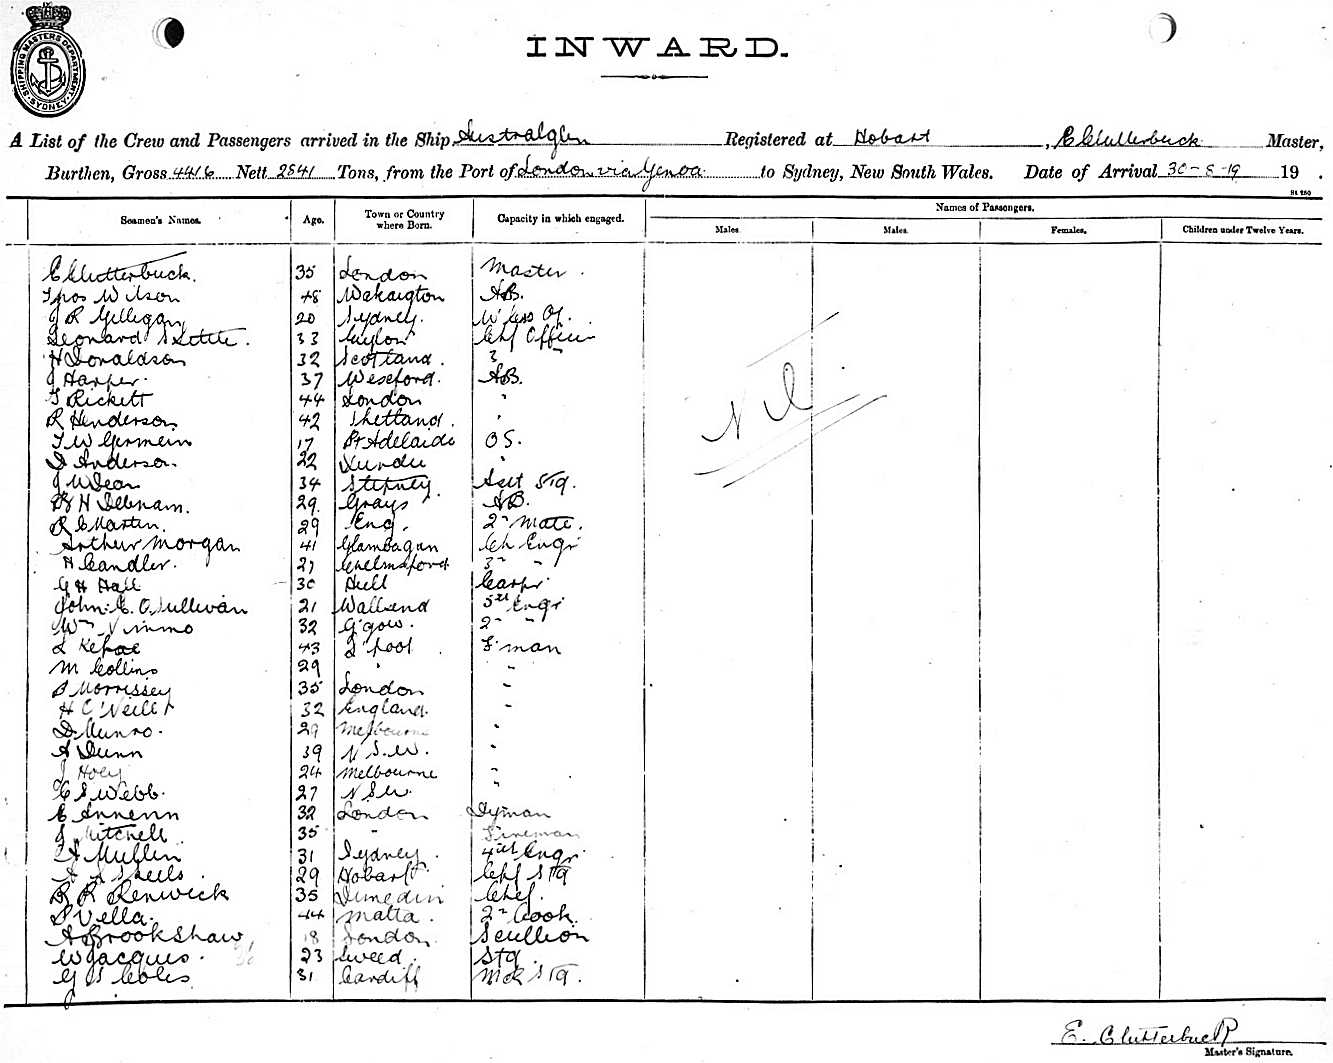 SHIPPING MASTERS DEPARTMENT SYDNEY
INWARD.
A List of the Crew and Passengers arrived in the Ship Australglen Registered at Hobart, E Clutterbuck Master,
Burthen, Gross 4416 Nett 2541 Tons, from the Port of London via Genoa to Sydney, New South Wales. Date of Arrival 30-8-19 19 .
Seamen's Names. Age. Town or Country where Born. Capacity in which engaged. Names of Passengers.
Males Males Females. Children under Twelve Years.
E Clutterbuck. 35 London Master.
Thos Wilson 48 AB.
J R Gilligan 20 Sydney. W'less Op.
Leonard S 33 Ceylon Chf Officer
H Donaldson 32 Scotland. 3 "
J Harper. 37 Wexford. AB.
T Rickett 44 London "
R Henderson 42 Shetland. "
T W Germein 17 Pt Adelaide OS.
Anderson. 22 "
J W Dean 34 Stepney Asst Std.
H Debnam. 29. Grays AB.
R C Martin. 29 Eng. 2nd Mate.
Arthur Morgan 41 Glamorgan Ch Engr
H Candler. 27 Chelmsford 3rd "
G H Hall 30 Hull Carpr
John. E. O'Sullivan 21 Wallsend 5th Engr
Wm Nimmo 32 G'gow. 2nd "
43 L'pool. F'man
M Collins 29 " "
Morrissey 35 London "
H O'Neill 32 England. "
D. Munro. 29 Melbourne "
A Dunn 39 N.S.W. "
J Hoey 24 Melbourne "
S Webb. 27 N S W. "
E 32 London D'yman
J Mitchell. 35 " Fireman
A Mullin 31 Sydney. 4th Engr
29 Hobart Chf Std
R R Renwick 35 Dunedin Chef.
S Vella. 44 Malta. 2nd Cook.
A Brookshaw, 18 London. Scullion
W Jacques. 23 Std.
G S Coles 31 Cardiff M'R Std.
Nil
E. Clutterbuck
Master's Signature.